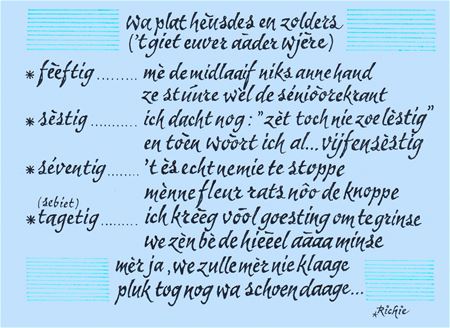 wa plat hèusdes en zolders
('t giet euver aàder wjère)
* fèèftig ......... mè de midlaaif niks anne hand
ze stúure wèl de séniòorekrant
* sèstig .......... ich dacht nog: "zèt toch nie zoe lèstig"
en toèn woort ich al... vijfensèstig
* séventig ....... 't ès echt nemie te stoppe
mènne fleur rats nôo de knoppe
(sebiet)
* tagetig ......... ich krèèg vōōl goesting om te grinse
we zèn bè de hieēel āāaa minse
mèr ja, we zulle mèr nie klaage
pluk tog nog wa schoen daage...
Richie